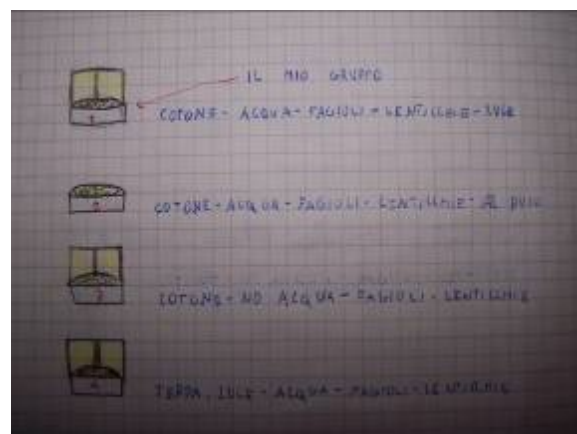 IL MIO GRUPPO
1
COTONE - ACQUA - FAGIOLI - LENTICCHIE - LUCE
2
COTONE - ACQUA - FAGIOLI - LENTICCHIE - BUIO
3
COTONE - NO ACQUA - FAGIOLI - LENTICCHIE
4
TERRA, LUCE - ACQUA - FAGIOLI - LENTICCHIE